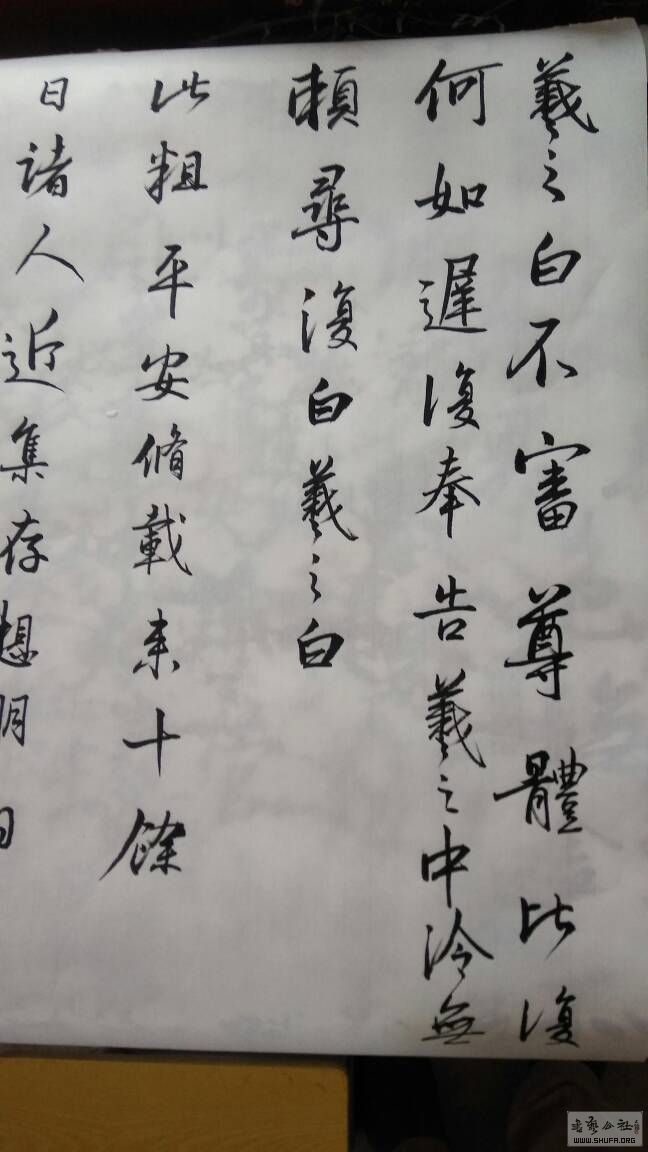 羲之白不審尊體比復
何如遲復奉告羲之中冷無
賴尋復白羲之白
此粗平安脩載来十餘
日諸人近集存想明日
書藝公社
WWW.SHUFA.ORG